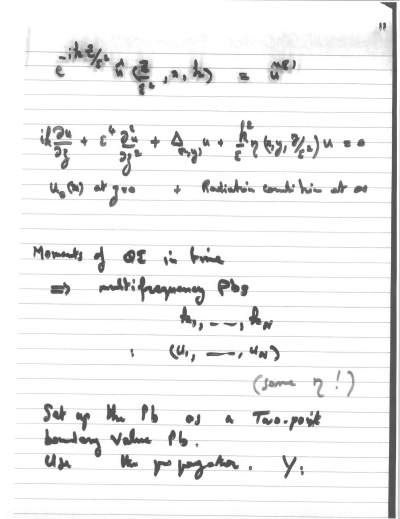 "
e^{-ikz/ε²} û(z/ε², x, k) = u^{(ε)}
ik ∂u/∂z + ε⁴ ∂²u/∂z² + Δ_{(x,y)} u + k²/ε η(x, y, z/ε²) u = 0
u₀(x) at z=0 + Radiation condition at ∞
Moments of QE in time
⇒ multifrequency Pbs
k₁, ..., k_N
(u₁, —, u_N)
(same η !)
Set up the Pb as a Two-point
boundary value Pb.
Use the propagator. Y: